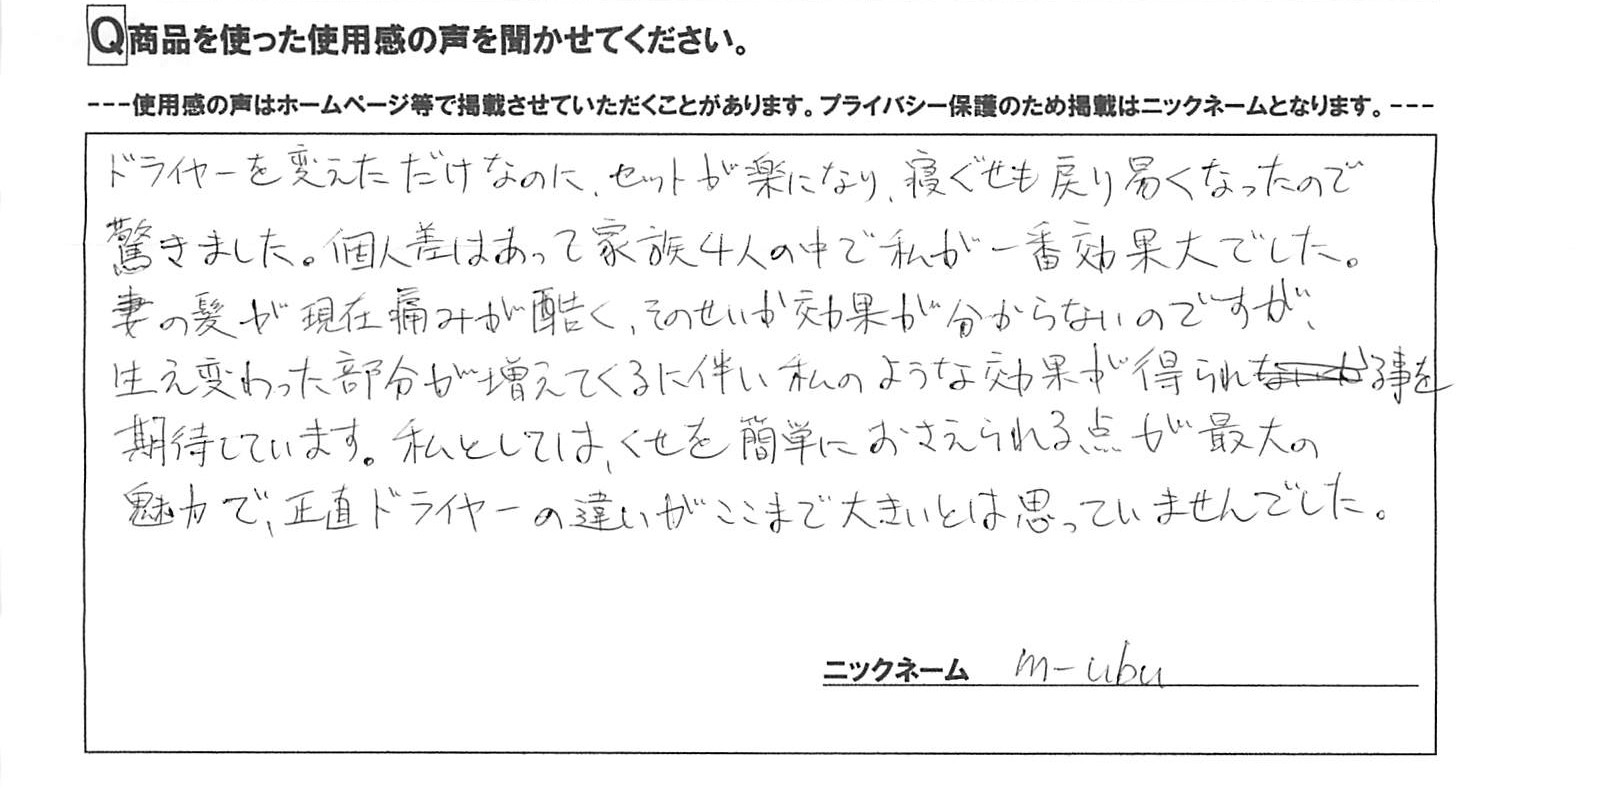 Q商品を使った使用感の声を聞かせてください。
---使用感の声はホームページ等で掲載させていただくことがあります。プライバシー保護のため掲載はニックネームとなります。---
ドライヤーを変えただけなのに、セットが楽になり、寝ぐせも戻り易くなったので
驚きました。個人差はあって家族4人の中で私が一番効果大でした。
妻の髪が現在痛みが酷く、そのせいか効果が分からないのですが、
生え変わった部分が増えてくるに伴い私のような効果が得られる事を
期待しています。私としては、くせを簡単におさえられる点が最大の
魅力で、正直ドライヤーの違いがここまで大きいとは思っていませんでした。
ニックネーム m-ubu